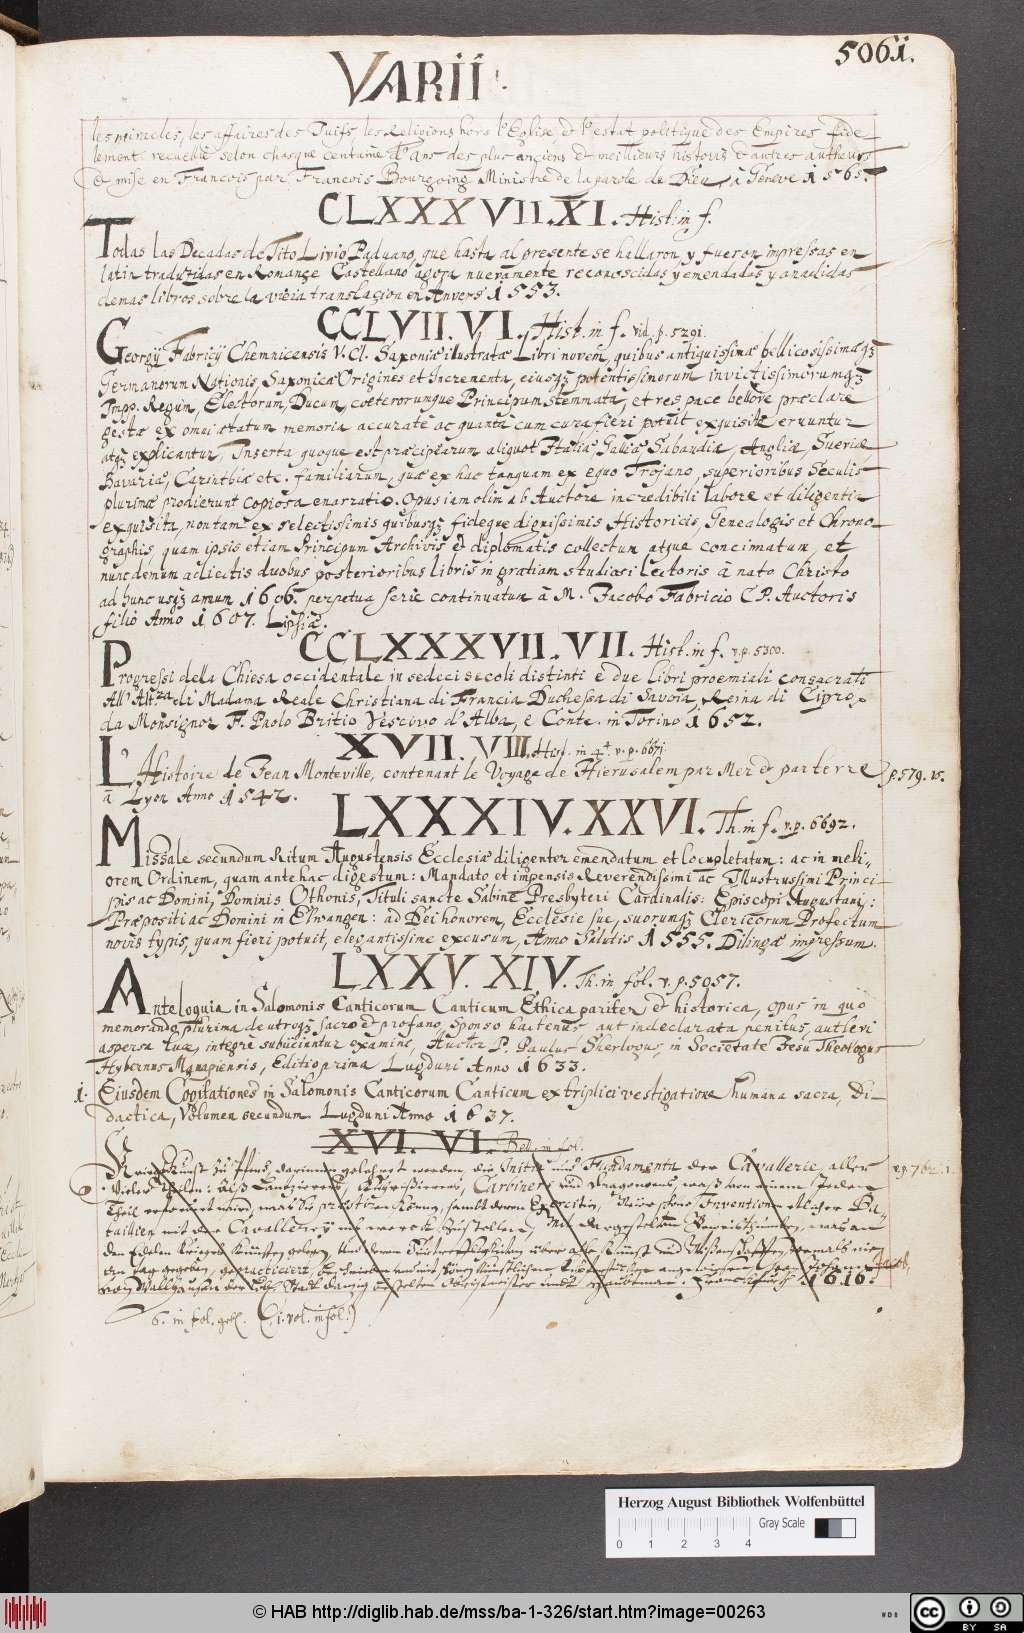 5061.
VARII.
les miracles, les affaires des Juifs, les Religions hors l'Eglise, & l'estat politique des Empires fide
lement recueilli selon chasque centaine d'Ans des plus anciens et meilleurs historiens & autres autheurs
& mise en Francois par Francois Bourgoing Ministre de la parole de Dieu, à Geneve 1565.
CLXXXVII. XI. Hist. in f.
Todas las Decadas de Tito Livio Paduano, que hasta al presente se hallaron, y fueron impressas en
latin traduzidas en Romançe Castellano agora nuevamente reconosscidas y emendadas y anadidas
demas libros sobre la vieia translaçion en Anvers 1553.
CCLVII. VI. Hist. in f. vid. p. 5291.
Georgij Fabricij Chemnicensis V. Cl. Saxoniæ illustratæ Libri novem, quibus antiquissimæ bellicosissimæq3
Germanorum Nationis, Saxonicæ Origines et Incrementa, eiusq3 potentissimorum invictissimorumq3
Impp. Regum, Electorum, Ducum, cœterorumque Principum stemmata, et res pace bellove præclare
gestæ ex omni ætatum memoria accurate ac quanta cum cura fieri potuit exquisite eruuntur
atq3 explicantur, Inserta quoque est præcipiarum aliquot Italiæ, Galliæ, Sabaudiæ, Angliæ, Sueciæ
Bavariæ, Carinthiæ etc. familiarum, quæ ex hac tanquam ex equo Trojano, superioribus seculis
plurimæ prodierunt copiosa enarratio. Opus iam olim ab Auctore incredibili labore et diligentia
exquisita, non tam ex selectissimis quibusq3 fideque dignissimis Historicis, Genealogis et Chrono-
graphis, quam ipsis etiam Principum Archivis et diplomatis collectum atque concinnatum, et
nunc demum adiectis duobus posterioribus libris in gratiam studiosi Lectoris à nato Christo
ad hunc usq3 annum 1606. perpetua serie continuatum à M. Jacobo Fabricio C. P. Auctoris
filio Anno 1607. Lipsiæ.
CCLXXXVII. VII. Hist. in f. v. p. 5300.
Progressi della Chiesa occidentale in sedeci secoli distinti è due libri proemiali consacrati
All' Alt.za di Madama Reale Christiana di Francia Duchessa di Savoia, Reina di Cipro,
da Monsignor F. Paolo Britio Vescivo d'Alba, e Conte. in Torino 1652.
XVII. VIII. Hist. in 4t. v. p. 6671.
L'Histoire de Jean Monteville, contenant le Voyage de Hierusalem par Mer & par terre p. 579. 15.
à Lyon Anno 1542.
LXXXIV. XXVI. Th. in f. v. p. 6692.
Missale secundum Ritum Augustensis Ecclesiæ diligenter emendatum et locupletatum: ac in meli-
orem Ordinem, quam antehac digestum: Mandato et impensis Reverendissimi ac Illustrissimi Princi-
pis ac Domini, Dominis Othonis, Tituli sancte Sabine Presbyteri Cardinalis: Episcopi Augustani:
Præpositi ac Domini in Elwangen: ad Dei honorem, Ecclesie sue, suorumq3 Clericorum Profectum
novis typis, quam fieri potuit, elegantissime excusum, Anno Salutis 1555. Dilingæ impressum.
LXXV. XIV. Th. in fol. v. p. 5057.
Anteloquia in Salomonis Canticorum Canticum Ethica pariter & historica, opus in quo
memoranda plurima de utroq3 sacro & profano, sponso hactenus aut indeclarata penitus, aut levi
aspersa luce, integre subiiciuntur examine, Auctor P. Paulus Sherlogus, in Societate Jesu Theologus
Hybernus Manapiensis, Editio prima Lugduni Anno 1633.
1. Eiusdem Cogitationes in Salomonis Canticorum Canticum ex triplici vestigatione humana sacra, Di-
dactica, Volumen secundum Lugduni Anno 1637.
XVI. VI. Bell. in fol.
KriegsKunst zu Pferd, darinnen gelehret werden, die Initia und Fundamenta der Cavallerie, aller
vierer Theilen: Als Lantzierers, Kuyrissierers, Carbiners und Dragoeners, waß von einem jeden
Theil erfordert wird, was sie præstiren können, sambt deren Exercitien, Newe schöne Inventionen etlicher Ba-
taillien mit der Cavallerey ins werck zustellen,
gepracticiert,
1616.
6. in fol. geh. (1. vol. in fol.)
Herzog August Bibliothek Wolfenbüttel
Gray Scale
0 1 2 3 4
© HAB http://diglib.hab.de/mss/ba-1-326/start.htm?image=00263
WDB
CC BY SA